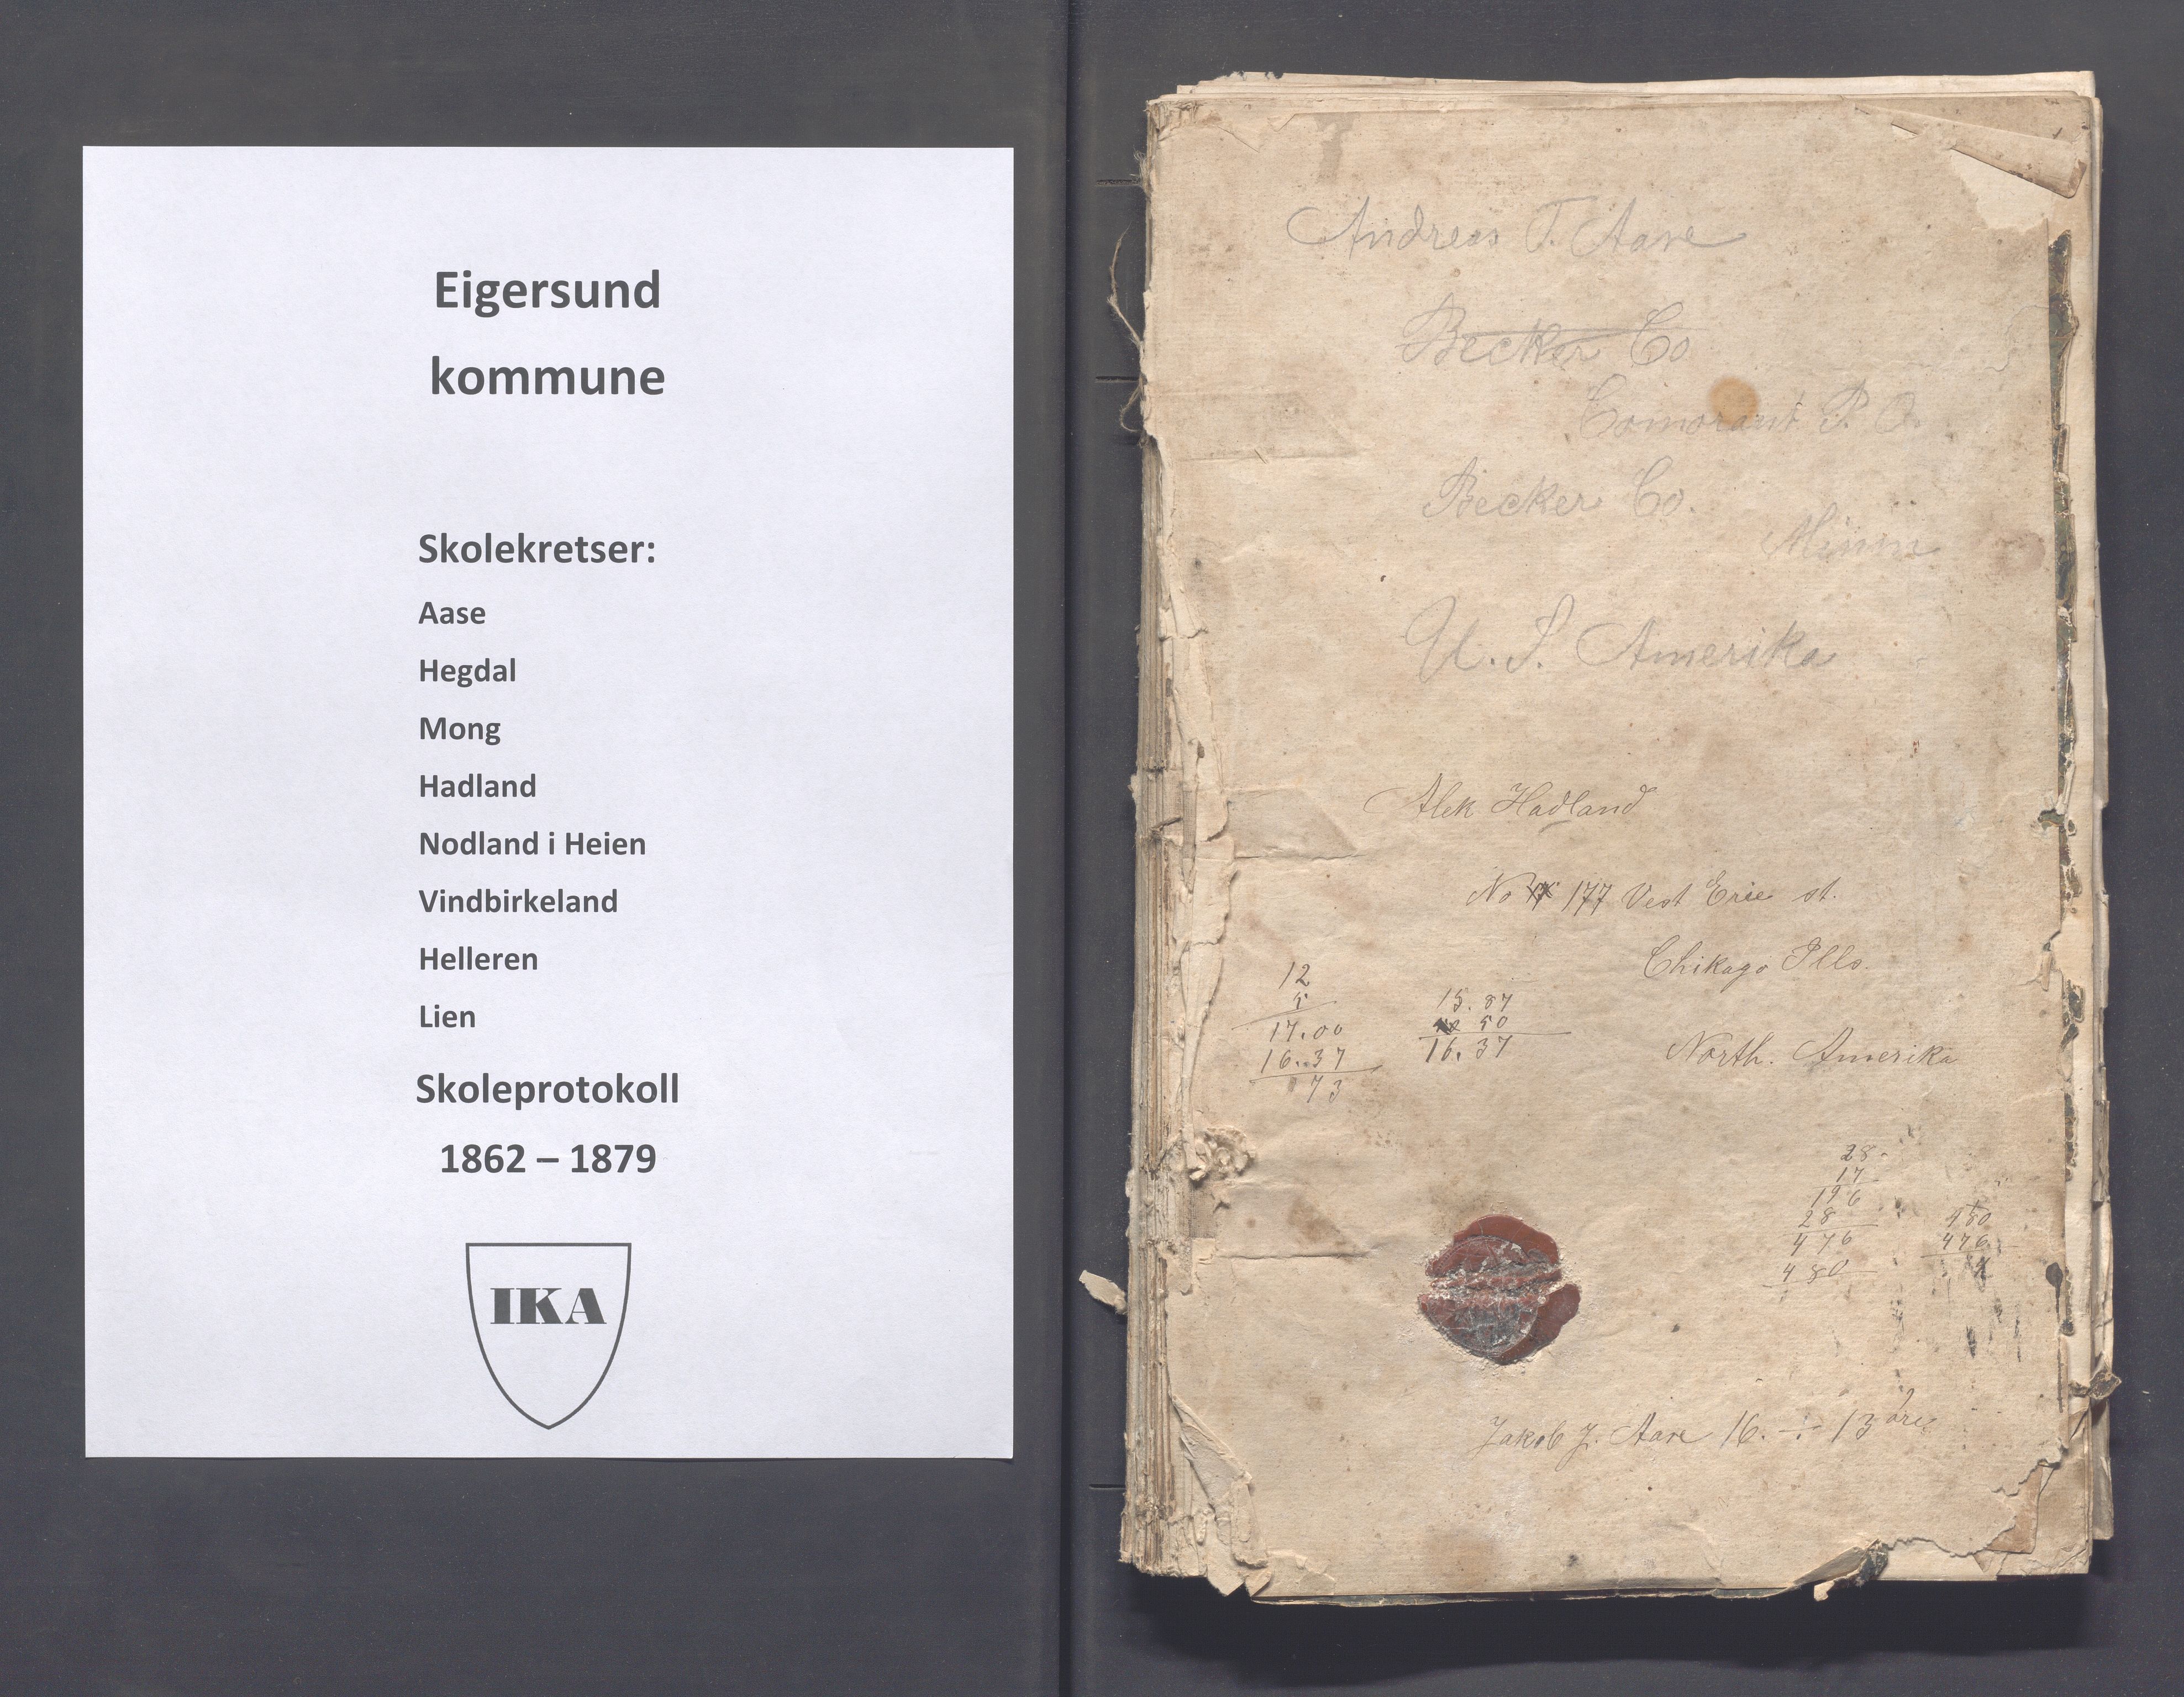 Eigersund
kommune
Skolekretser:
Aase
Hegdal
Mong
Hadland
Nodland i Heien
Vindbirkeland
Helleren
Lien
Skoleprotokoll
1862 – 1879
IKA
Andreas T. Aase
Becker Co
Comorant P. O.
Becker Co.
Minn
U. S. Amerika
Alek Hadland
No 177 Vest Erie st.
Chikago Ills.
North. Amerika
12
5
17.00
16.37
73
15.87
50
16.37
28
17
196
28
476
480
480
476
4
Jakob J. Aase 16. ÷ 13 øre